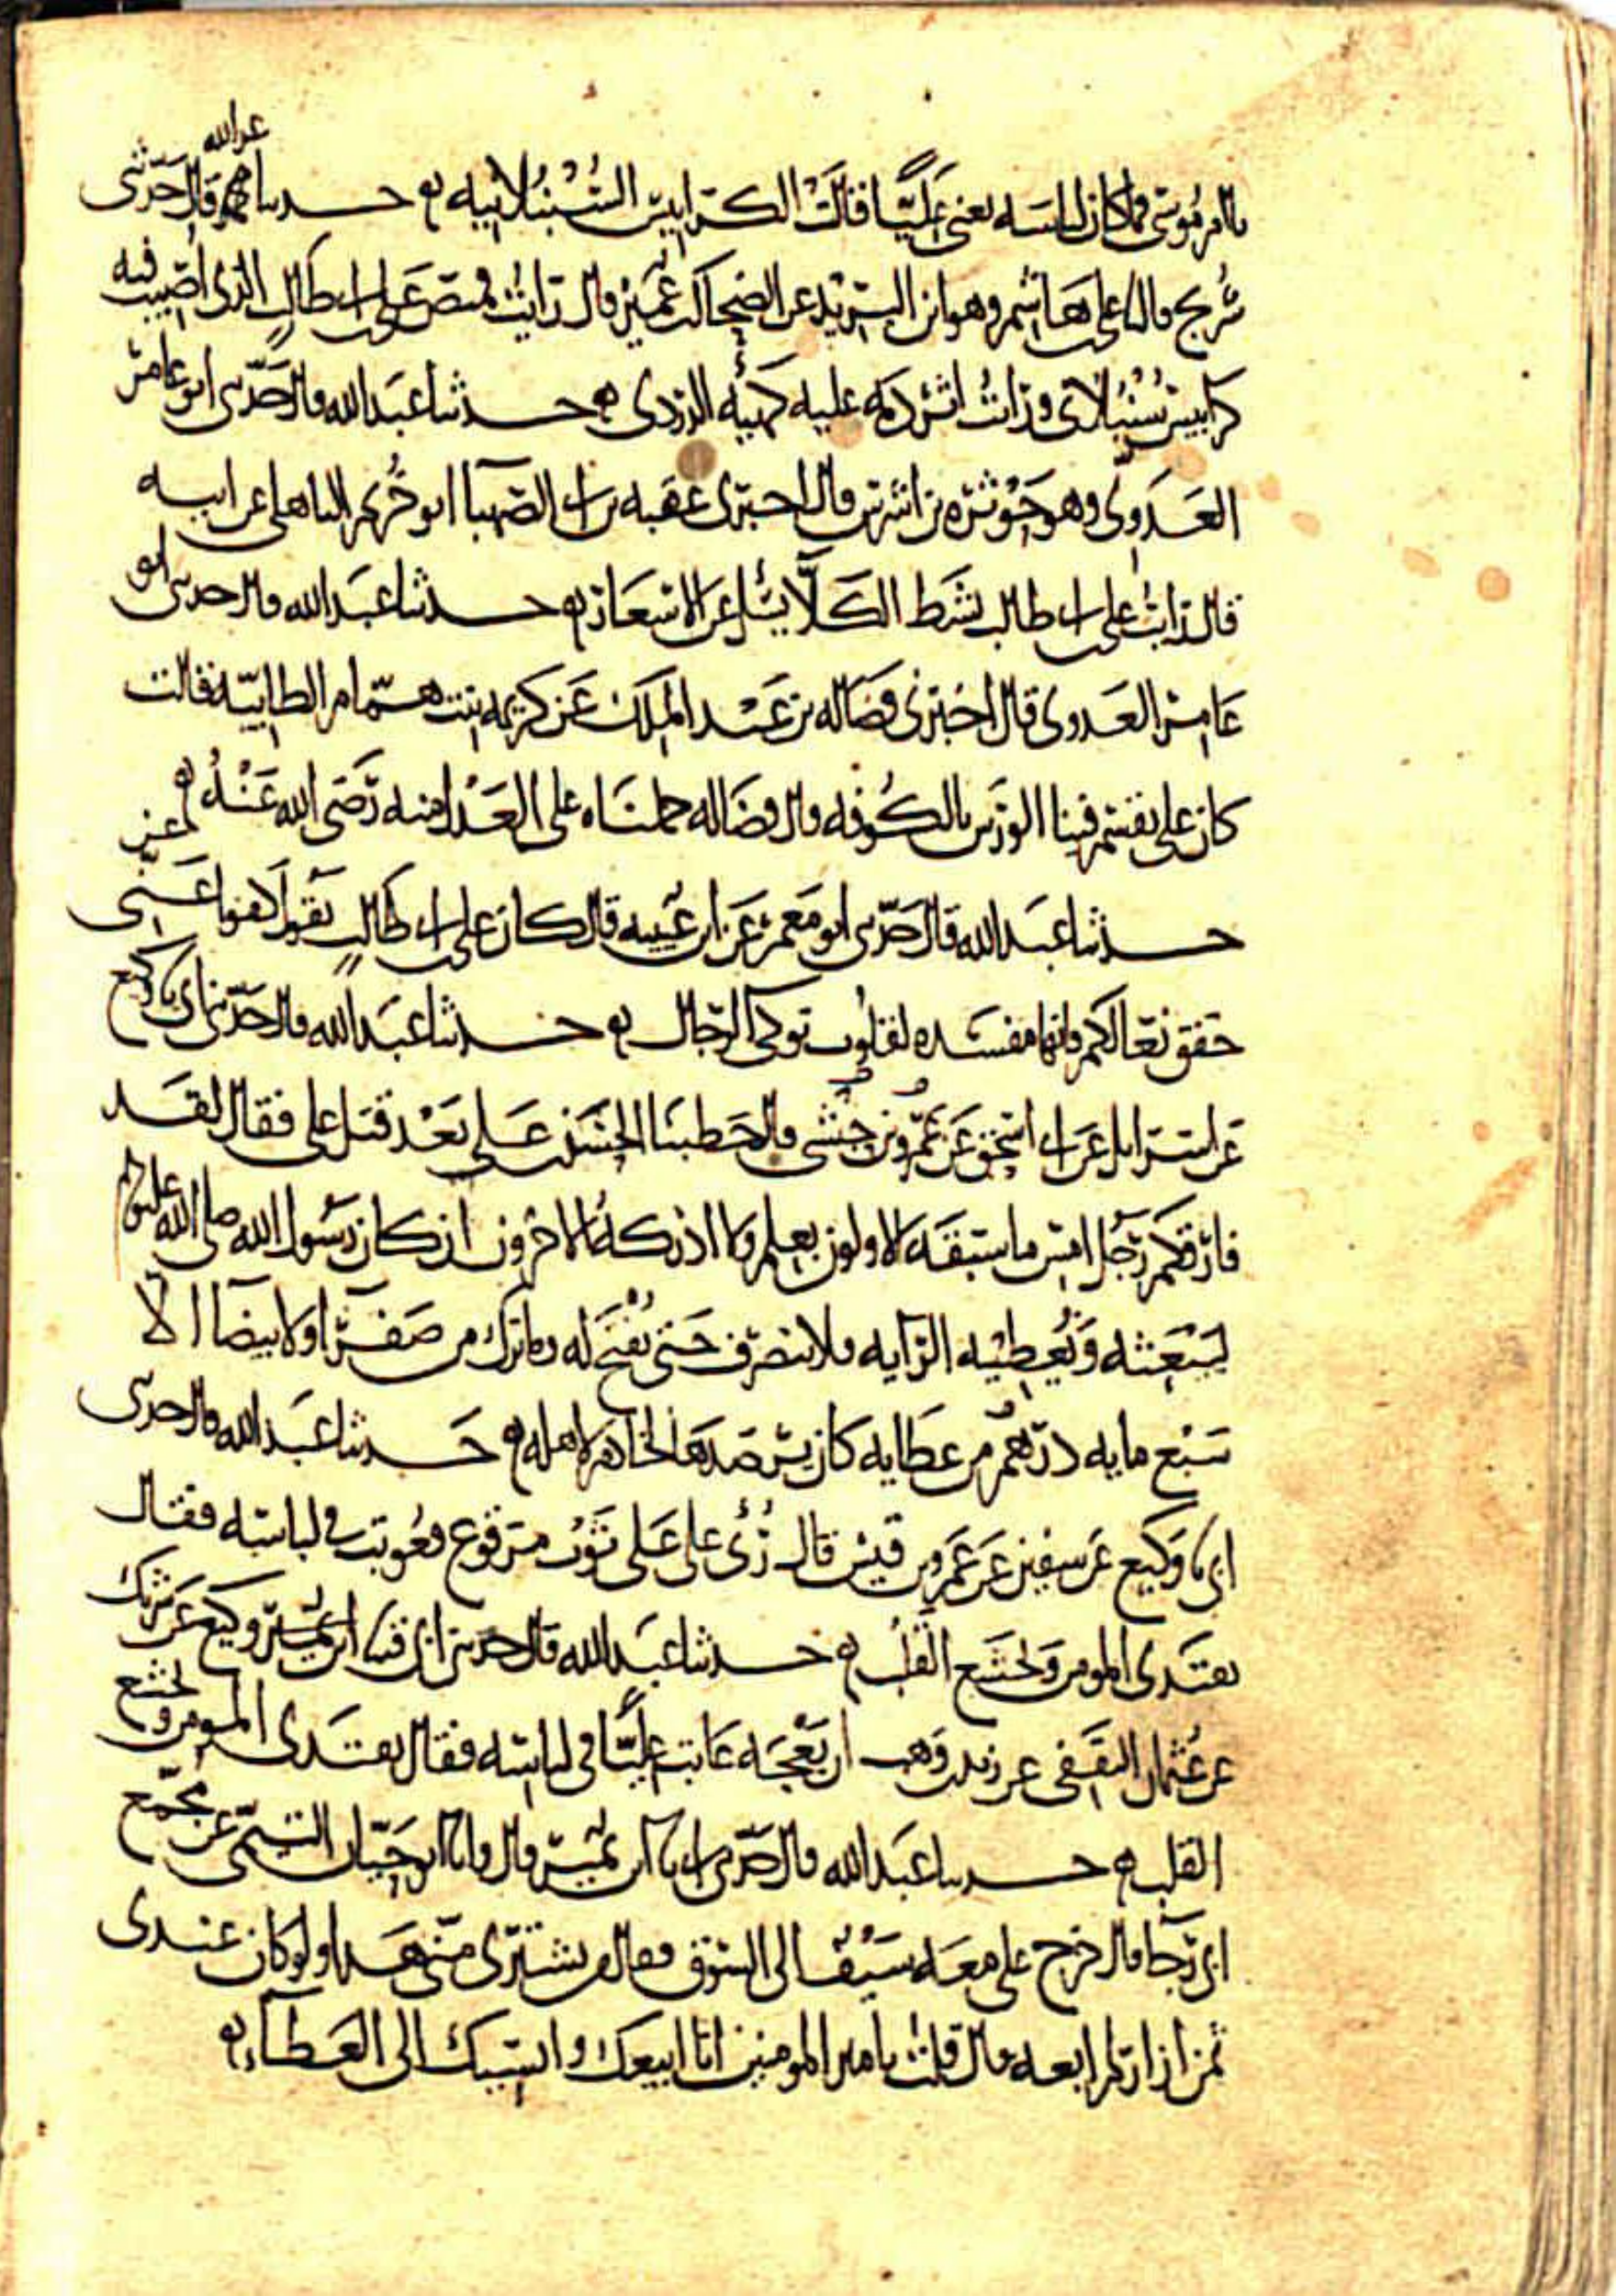 يا ام موسى فما كان لباسه يعني عليا قالت الكرابيس السنبلانية حدثنا عبد الله قال حدثني
سريج قال نا علي هاشم وهو ابن البريد عن الضحاك بن عمير قال رايت قميص علي بن ابي طالب الذي اصيب فيه
كرابيس سنبلاني ورايت اثر دمه عليه كهيئة الدردي حدثنا عبد الله قال حدثني ابو عامر
العدوي وهو حوثرة بن اشرس قال اخبرني عقبة بن ابي الصهبا ابو خريم الباهلي عن ابيه
قال رايت علي بن ابي طالب بشط الكلا يسل عن الاسعار حدثنا عبد الله قال حدثني ابو
عامر العدوي قال اخبرني فضالة بن عبد الملك عن كريمة ابنت همام الطايية قالت
كان علي يقسم فينا الورس بالكوفة قال فضالة حملناه على العدل منه رضي الله عنه
حدثنا عبد الله قال حدثني ابو معمر عن ابن عيينة قال كان علي بن ابي طالب يقول كفوا عني عن
خفق نعالكم فانها مفسدة لقلوب نوكى الرجال حدثنا عبد الله قال حدثني ابي نا وكيع
عن اسرايل عن ابي اسحق عن عمرو بن حبشي قال خطبنا الحسن بن علي بعد قتل علي فقال لقد
فارقكم رجل امس ما سبقه الاولون بعلم ولا ادركه الاخرون ان كان رسول الله صلى الله عليه
ليبعثه ويعطيه الراية فلا ينصرف حتى يفتح له وما ترك من صفرا ولا بيضا الا
سبع ماية درهم من عطايه كان يرصدها لخادم لاهله حدثنا عبد الله قال حدثني
ابي نا وكيع عن سفين عن عمرو بن قيس قال رئي على علي ثوب مرقوع فعوتب في لباسه فقال
يقتدى المومن ويخشع القلب حدثنا عبد الله قال حدثني ابي وكيع عن شريك
عن عثمان الثقفي عن زيد بن وهب ان بعجة عاب عليا في لباسه فقال يقتدى المومن ويخشع
القلب حدثنا عبد الله قال حدثني ابي نا ابن نمير قال وانا ابو حيان التيمي عن مجمع
ابي رجا قال خرج علي معه سيف الى السوق فقال من يشتري مني هذا ولو كان عندي
ثمن ازار لم ابعه قال قلت يا مير المومنين انا ابيعك وانسيك الى العطاء